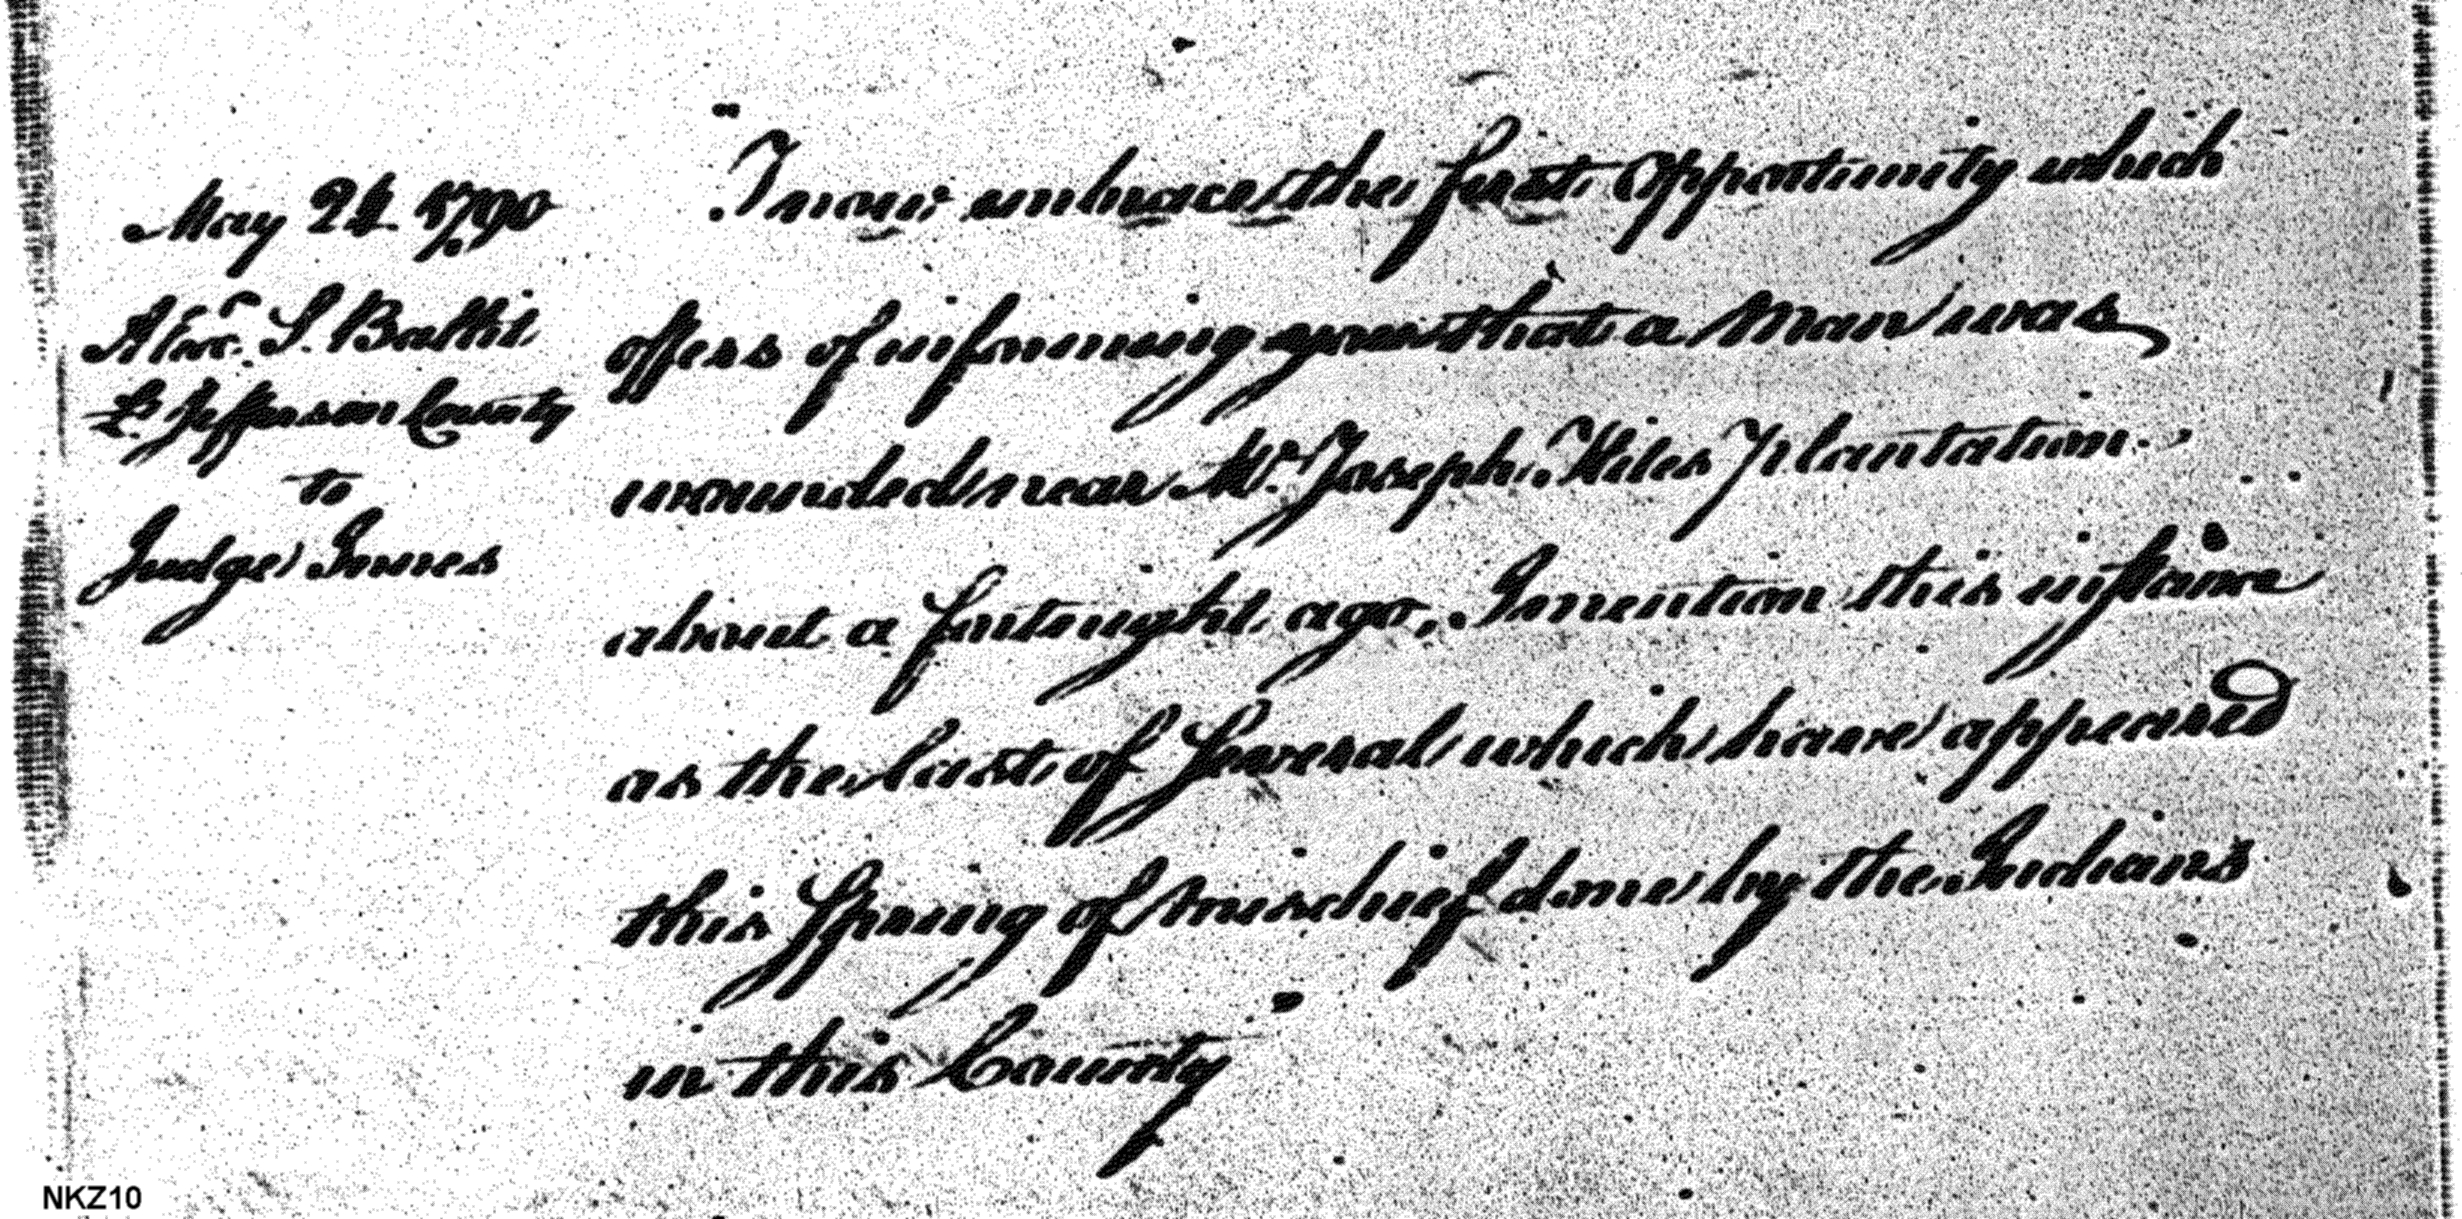 May 24 1790
Alexr. S. Bullit
Lt. Jefferson County
to
Judge Innes
I now embrace the first Opportunity which
offers of informing you that a Man was
wounded near Mr. Joseph Kiles plantation
about a fortnight ago. I mention this instance
as the last of Several which have appeared
this Spring of Mischief done by the Indians
in this County
NKZ10